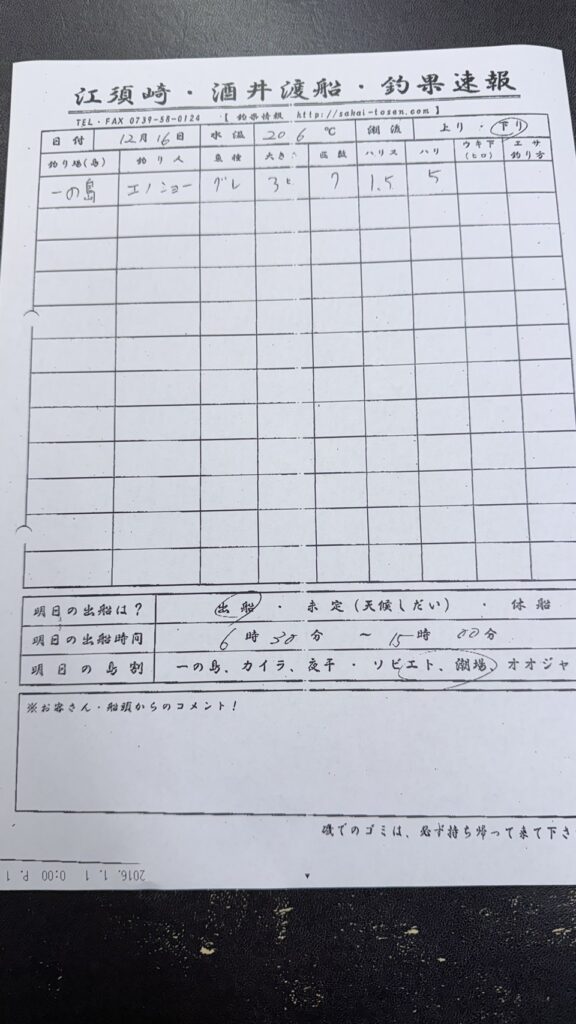 江須崎・酒井渡船・釣果速報
TEL・FAX 0739-58-0124 【 釣果情報 http://sakai-tosen.com 】
日付 12月16日 水温 20 6 ℃ 潮流 上り・下り
釣り場(島) 釣り人 魚種 大きさ 匹数 ハリス ハリ ウキ下(ヒロ) エサ釣り方
一の島 エノショー グレ 7 1.5 5
明日の出船は? 出船 ・ 未定(天候しだい) ・ 休船
明日の出船時間 6時30分 ~ 15時00分
明日の島割 一の島、カイラ、夜干・ソビエト、潮場、オオジャ
※お客さん・船頭からのコメント!
磯でのゴミは、必ず持ち帰って来て下さ
2016. 1. 1 0:00 P. 1